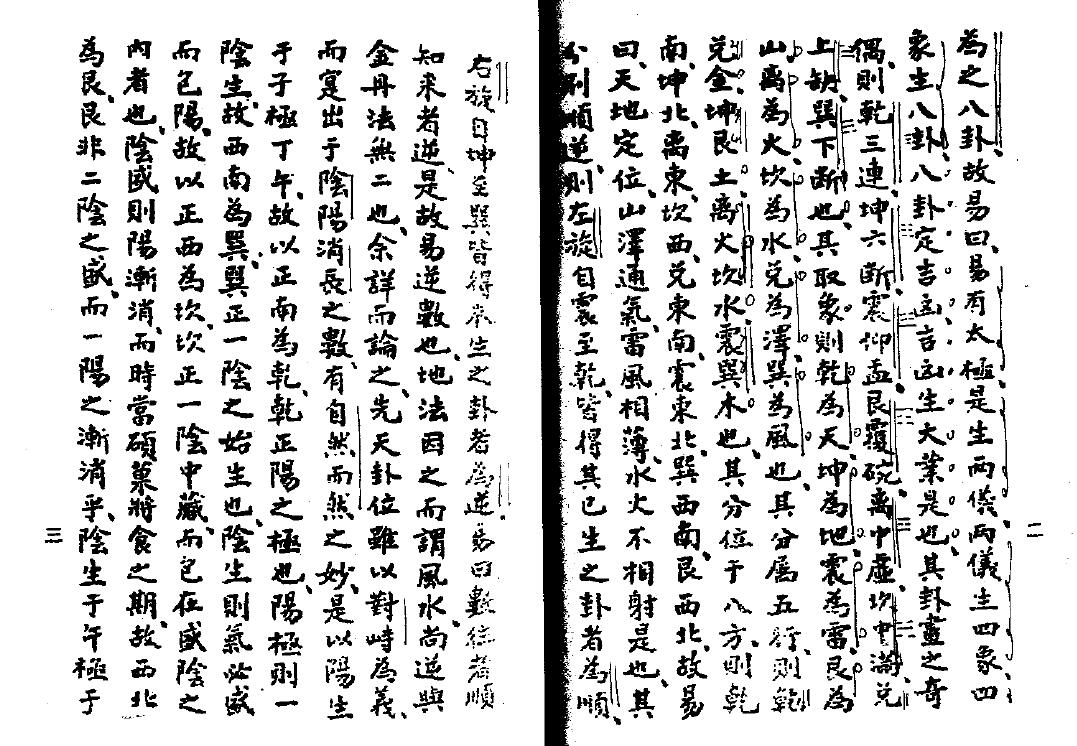 為之八卦故易曰、易有太極是生兩儀、兩儀生四象、四
象生八卦、八卦定吉凶、吉凶生大業是也、其卦畫之奇
偶則乾三連、坤六斷、震仰盂、艮覆碗、離中虛、坎中滿、兌
上缺、巽下斷也、其取象則乾為天、坤為地、震為雷、艮為
山、离為火、坎為水、兌為澤、巽為風也、其分属五行、則乾
兌金、坤艮土、离火、坎水、震巽木也、其分位于八方、則乾
南、坤北、离東、坎西、兌東南、震東北、巽西南、艮西北、故易
曰、天地定位、山澤通氣、雷風相薄、水火不相射是也、其
分別順逆、則左旋自震至乾、皆得其已生之卦者為順、
右旋自坤至巽皆得未生之卦者為逆、易曰數往者順
知来者逆、是故易逆數也、地法因之而謂風水、尚逆與
金丹法無二也、余詳而論之、先天卦位雖以對峙為義、
而寔出于陰陽消長之數、有自然而然之妙、是以陽生
于子極丁午、故以正南為乾、乾正陽之極也、陽極則一
陰生、故西南為巽、巽正一陰之始生也、陰生則氣必盛
而包陽、故以正西為坎、坎正一陰中藏、而包在盛陰之
內者也、陰盛則陽漸消、而時當碩菓將食之期、故西北
為艮、艮非二陰之盛、而一陽之漸消乎、陰生于午極于
二
三